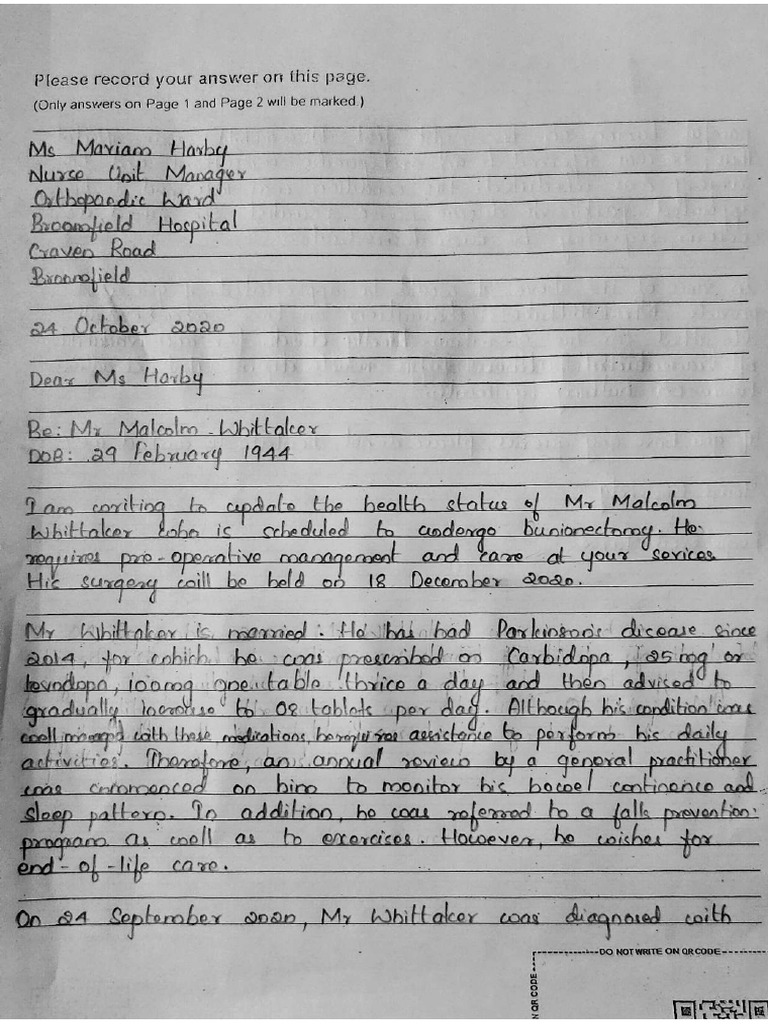 Please record your answer on this page.
(Only answers on Page 1 and Page 2 will be marked.)
Ms Mariam Harby
Nurse Unit Manager
Orthopaedic Ward
Broomfield Hospital
Craven Road
Broomfield
24 October 2020
Dear Ms Harby
Re: Mr Malcolm Whittaker
DOB: 29 February 1944
I am writing to update the health status of Mr Malcolm
Whittaker who is scheduled to undergo bunionectomy. He
requires pre-operative management and care at your sevices.
His surgery will be held on 18 December 2020.
Mr Whittaker is married. He has had Parkinson's disease since
2014, for which he was prescribed on Carbidopa, 25mg or
levodopa, 100mg one table thrice a day and then advised to
gradually increase to 08 tablets per day. Although his condition was
well managed with these medications, he requires assistance to perform his daily
activities. Therefore, an annual review by a general practitioner
was commenced on him to monitor his bowel continence and
sleep pattern. In addition, he was referred to a falls prevention
program as well as to exercises. However, he wishes for
end-of-life care.
On 24 September 2020, Mr Whittaker was diagnosed with
DO NOT WRITE ON QR CODE
N QR CODE